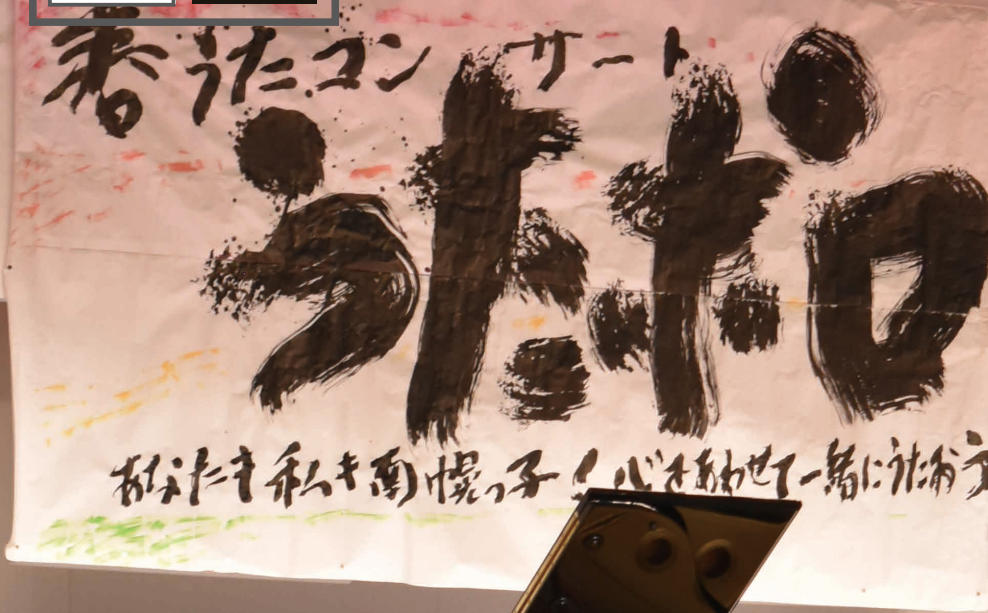 春うたコンサート
うたポロ
あなたも私も南幌っ子 心をあわせて一緒にうたおう